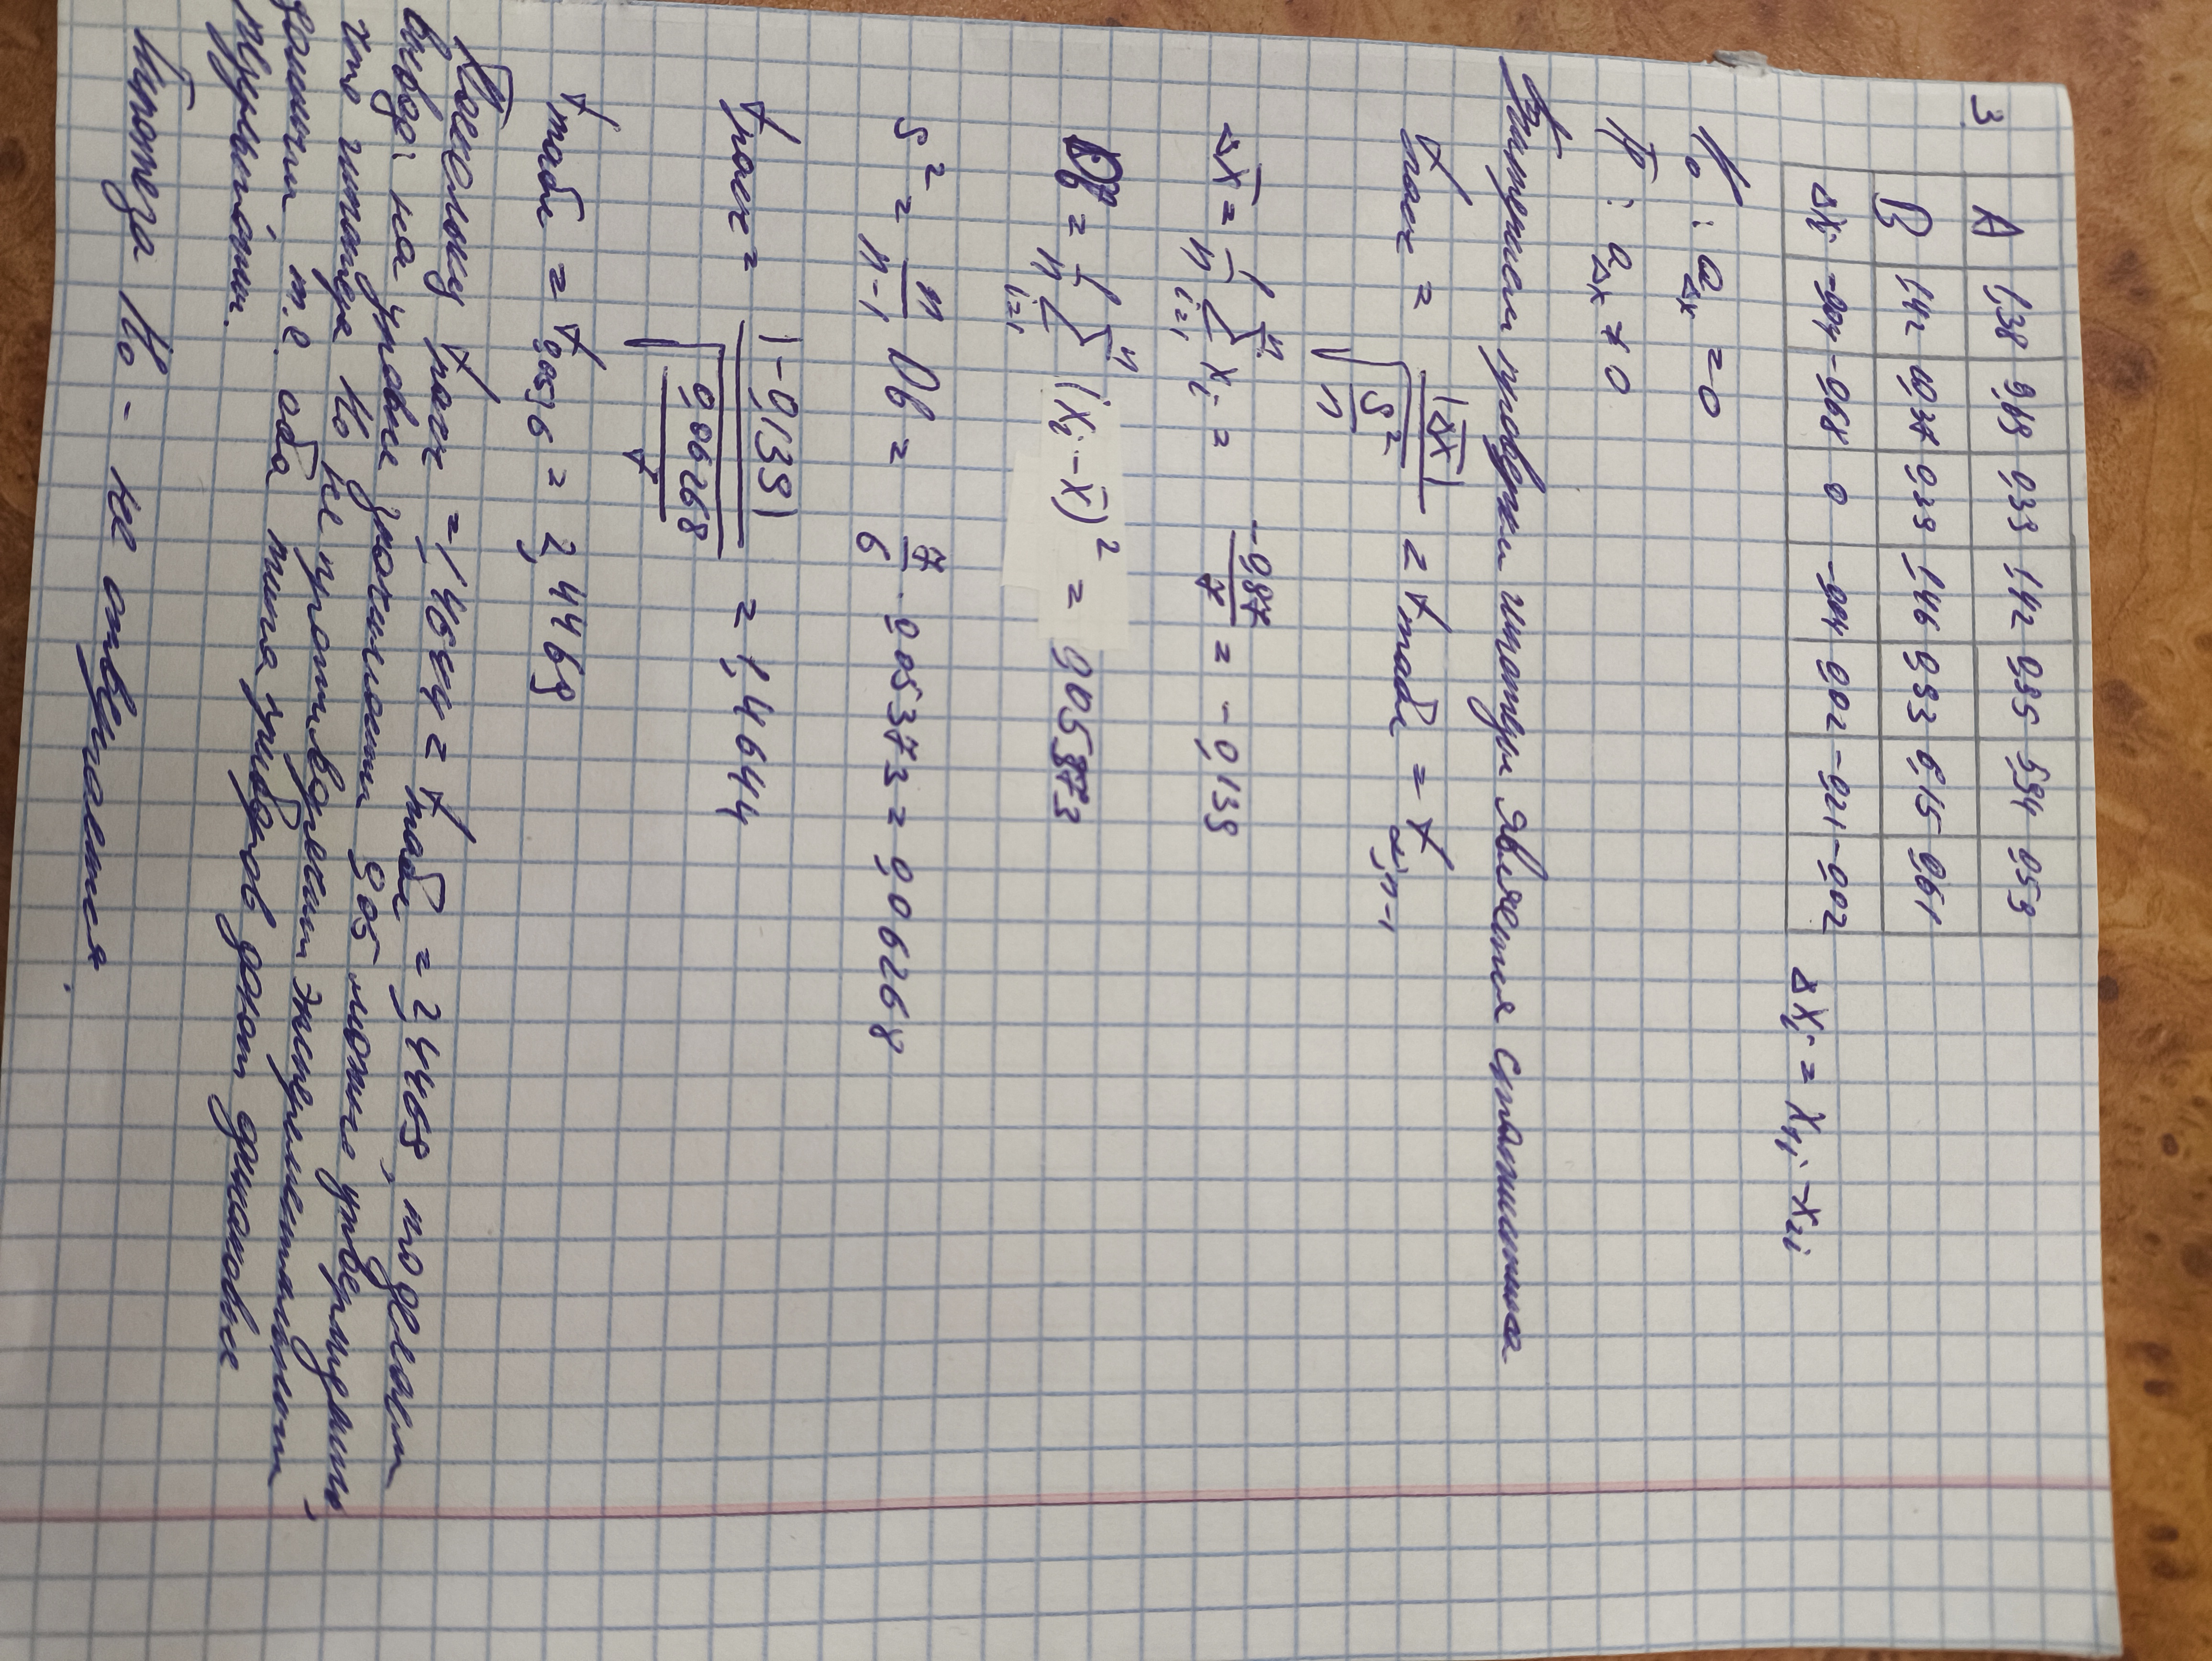 3.
A 1,38 9,69 0,39 1,42 0,55 5,94 0,59
B 1,42 10,37 0,39 1,46 0,53 6,15 0,61
Δxi -0,04 -0,68 0 -0,04 0,02 -0,21 -0,02 Δxi = x1i - x2i
H₀ : aΔx = 0
H̄ : aΔx ≠ 0
Критерием проверки гипотезы является статистика
tрасч = |Δx̄| / √(S²/n) = tтабл = tα;n-1
Δx̄ = 1/n Σ(i=1, n) xi = -0,97/7 = -0,139
Dв = 1/n Σ(i=1, n) (xi - x̄)² = 0,05373
S² = n/(n-1) Dв = 7/6 · 0,05373 = 0,06268
tрасч = |-0,139| / √(0,06268/7) = 1,4644
tтабл = t0,05;6 = 2,4469
Поскольку tрасч = 1,4644 < tтабл = 2,4469, то делаем
вывод: на уровне значимости 0,05 можно утверждать,
что гипотеза H₀ не противоречит экспериментальным
данным, т.е. оба типа приборов дают одинаковые
результаты.
Гипотеза H₀ - не отвергается.